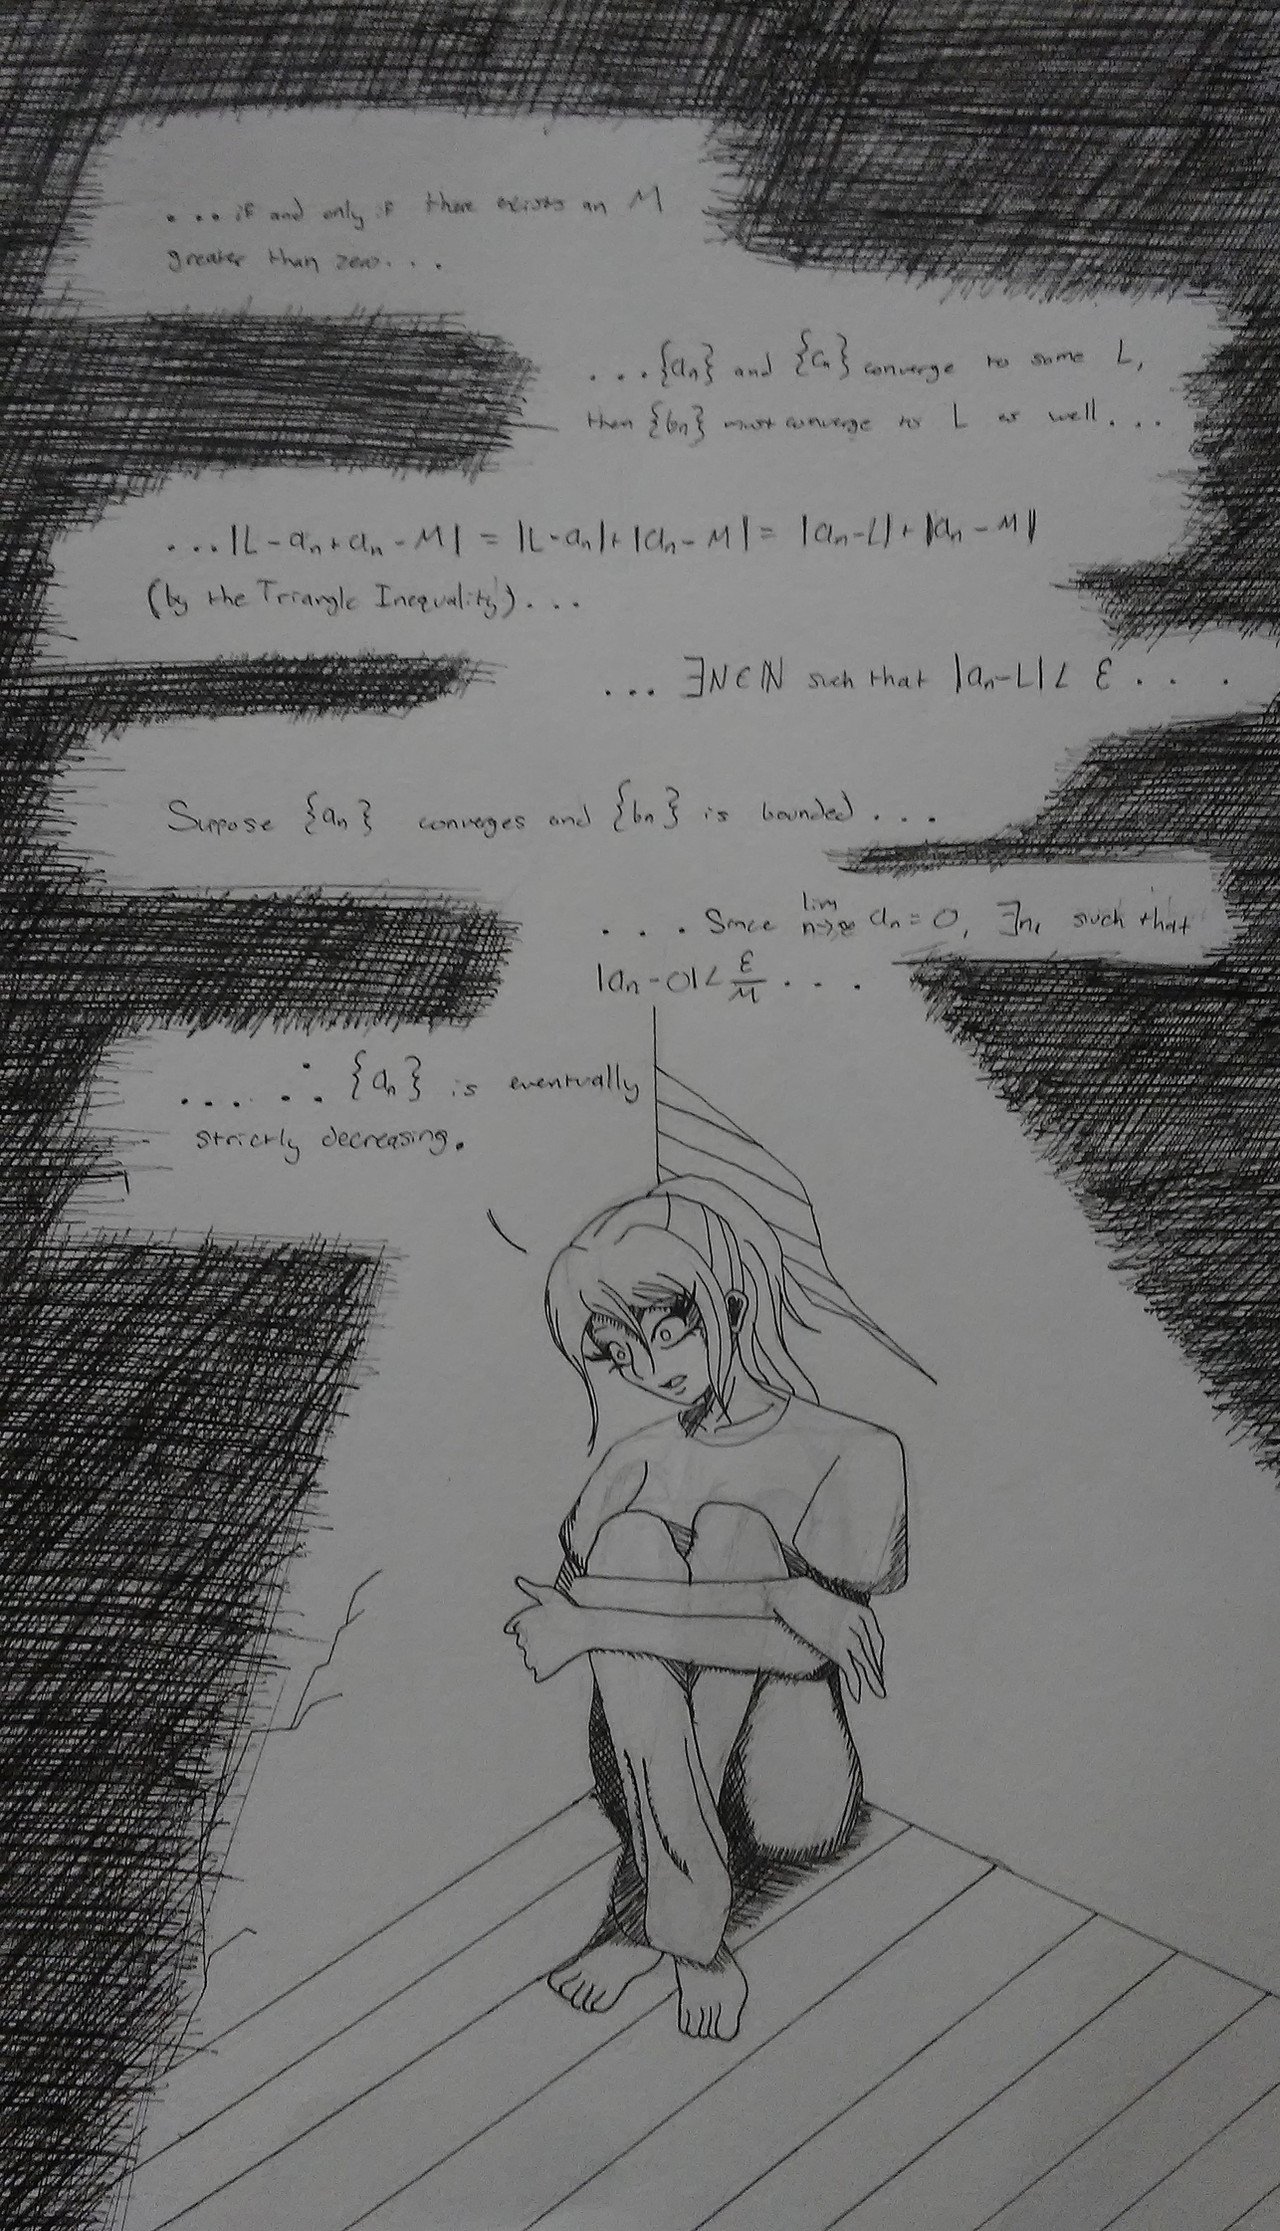 ...if and only if there exists an M
greater than zero...
...{aₙ} and {cₙ} converge to some L,
then {bₙ} must converge to L as well...
...|L-aₙ+aₙ-M| = |L-aₙ|+|aₙ-M| = |aₙ-L|+|aₙ-M|
(by the Triangle Inequality)...
...∃N∈ℕ such that |aₙ-L|< ε....
Suppose {aₙ} converges and {bₙ} is bounded...
...Since lim n→∞ aₙ=0, ∃n₁ such that
|aₙ-0|< ε/M...
... ∴ {aₙ} is eventually
strictly decreasing.